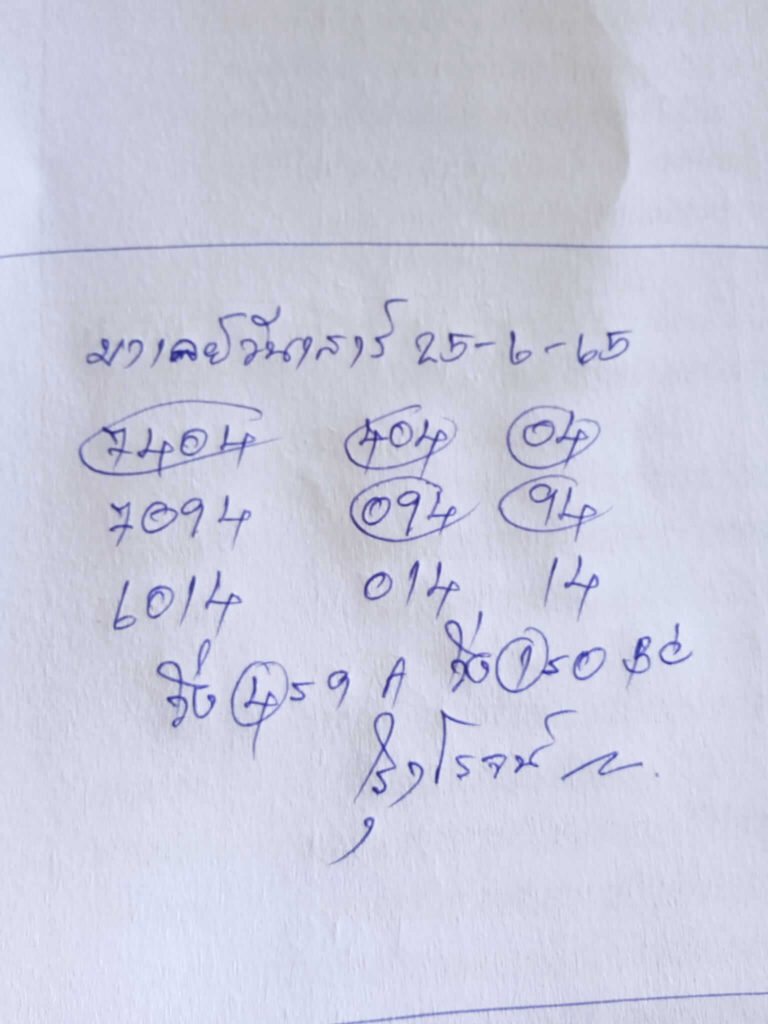 มาเลย์วันเสาร์ 25-6-65
7404 404 04
7094 094 94
6014 014 14
วิ่ง 4 ร 9 A วิ่ง 1 ร 0 BC
โรจน์